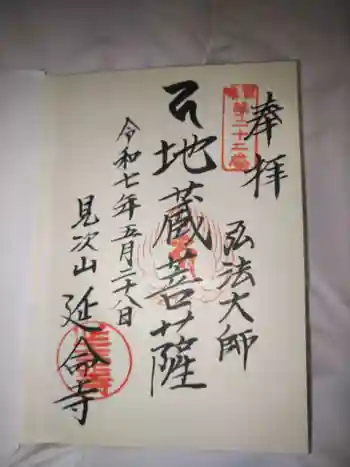 奉拝
弘法大師
地蔵菩薩
令和七年五月二十八日
見次山
延命寺